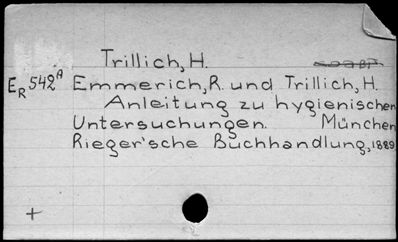 Trillich, H.
E_R 542^A Emmerich, R. und Trillich, H.
Anleitung zu hygienischen
Untersuchungen. München
Rieger'sche Buchhandlung, 1889
+